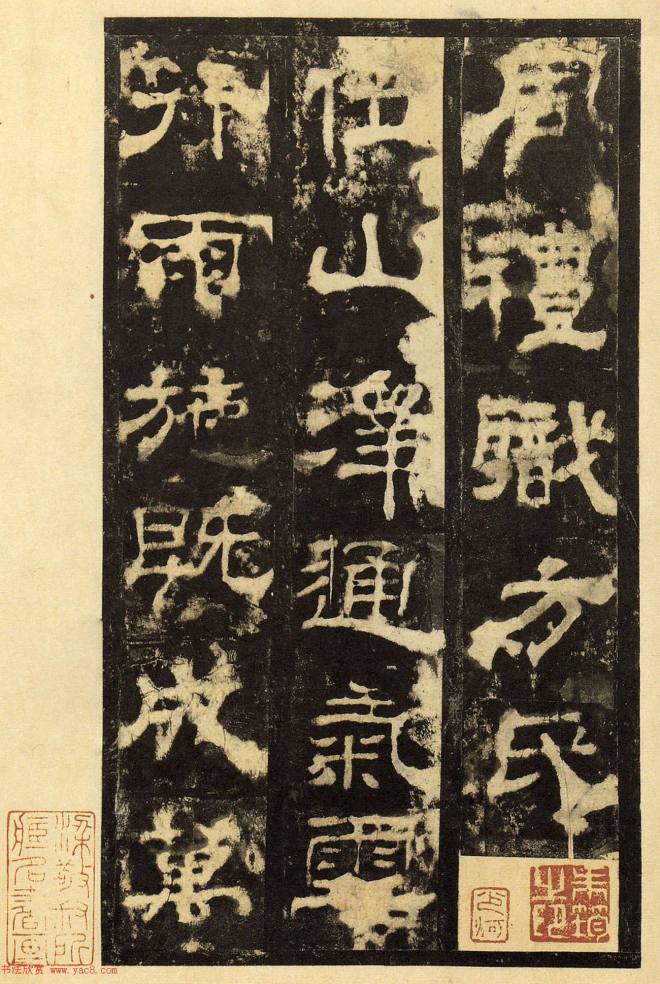 周禮職方氏
位山澤通氣雲
行雨施既成萬
书法欣赏 www.yac8.com